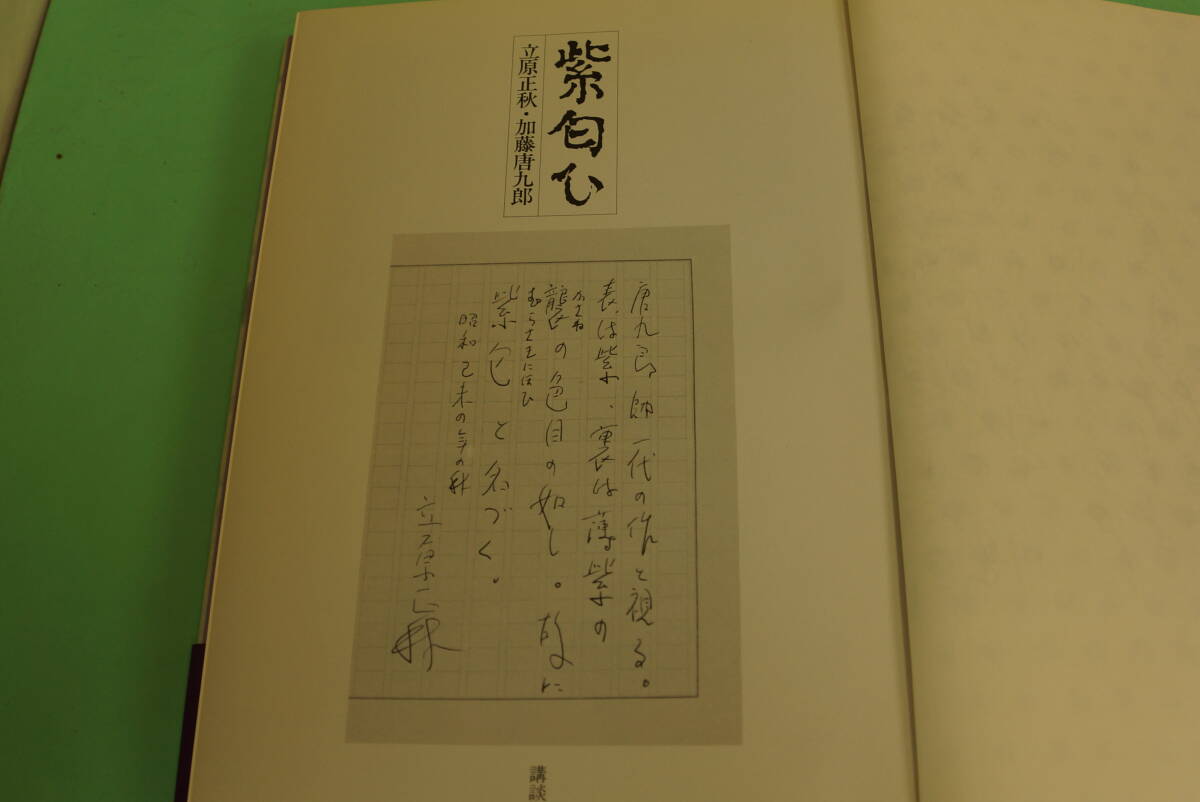 紫匂ひ
立原正秋・加藤唐九郎
唐九郎師一代の作と視る。
表は紫、裏は薄紫の
かさね
襲の色目の如し。故に
むらさきにほひ
紫匂と名づく。
昭和己未の年の秋
立原正秋
講談